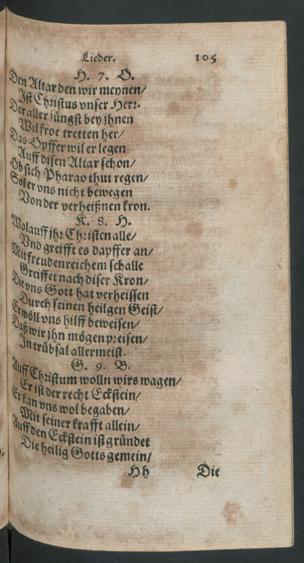 Lieder. 105
H. 7. O.
Den Altar den wir meynen/
Ist Christus vnser Herr.
Der aller jüngst bey jhnen
Wil froe tretten her/
Das Opffer wil er legen
Auff disen Altar schon/
Ob sich Pharao thut regen/
Sol er vns nicht bewegen
Von der verheißnen kron.
K. 8. H.
Wolauff jhr Christen alle/
Vnd greifft es dapffer an/
Mit freudenreichem schalle
Greiffet nach diser Kron/
Die vns Gott hat verheissen
Durch seinen heilgen Geist/
Er wöll vns hilff beweisen/
Daß wir jhn mögen preisen/
In trübsal allermeist.
G. 9. B.
Auff Christum wolln wirs wagen/
Er ist der recht Eckstein/
Er kan vns wol begaben/
Mit seiner krafft allein/
Auff den Eckstein ist gründet
Die heilig Gotts gemein/
Hh Die